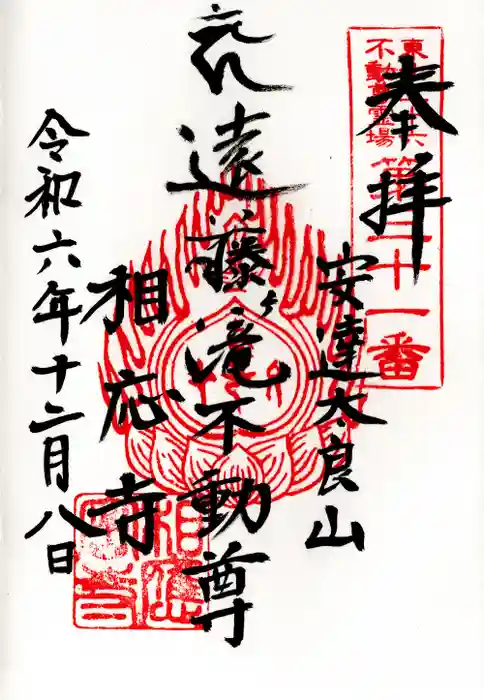 奉拝
東北三十六
不動尊霊場
第三十一番
安達太良山
遠藤ヶ滝不動尊
相応寺
令和六年十二月八日